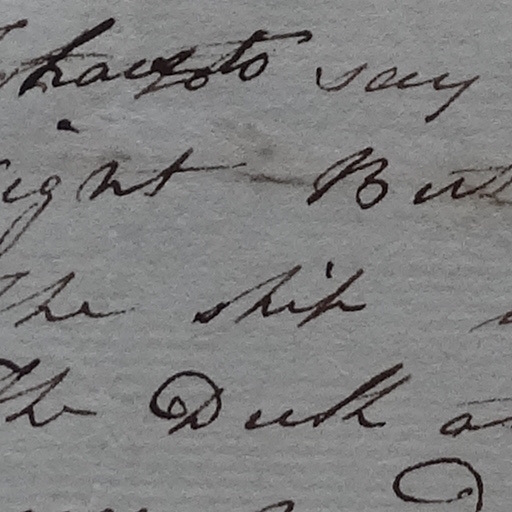 have to say
ight But
the ship
The Duth